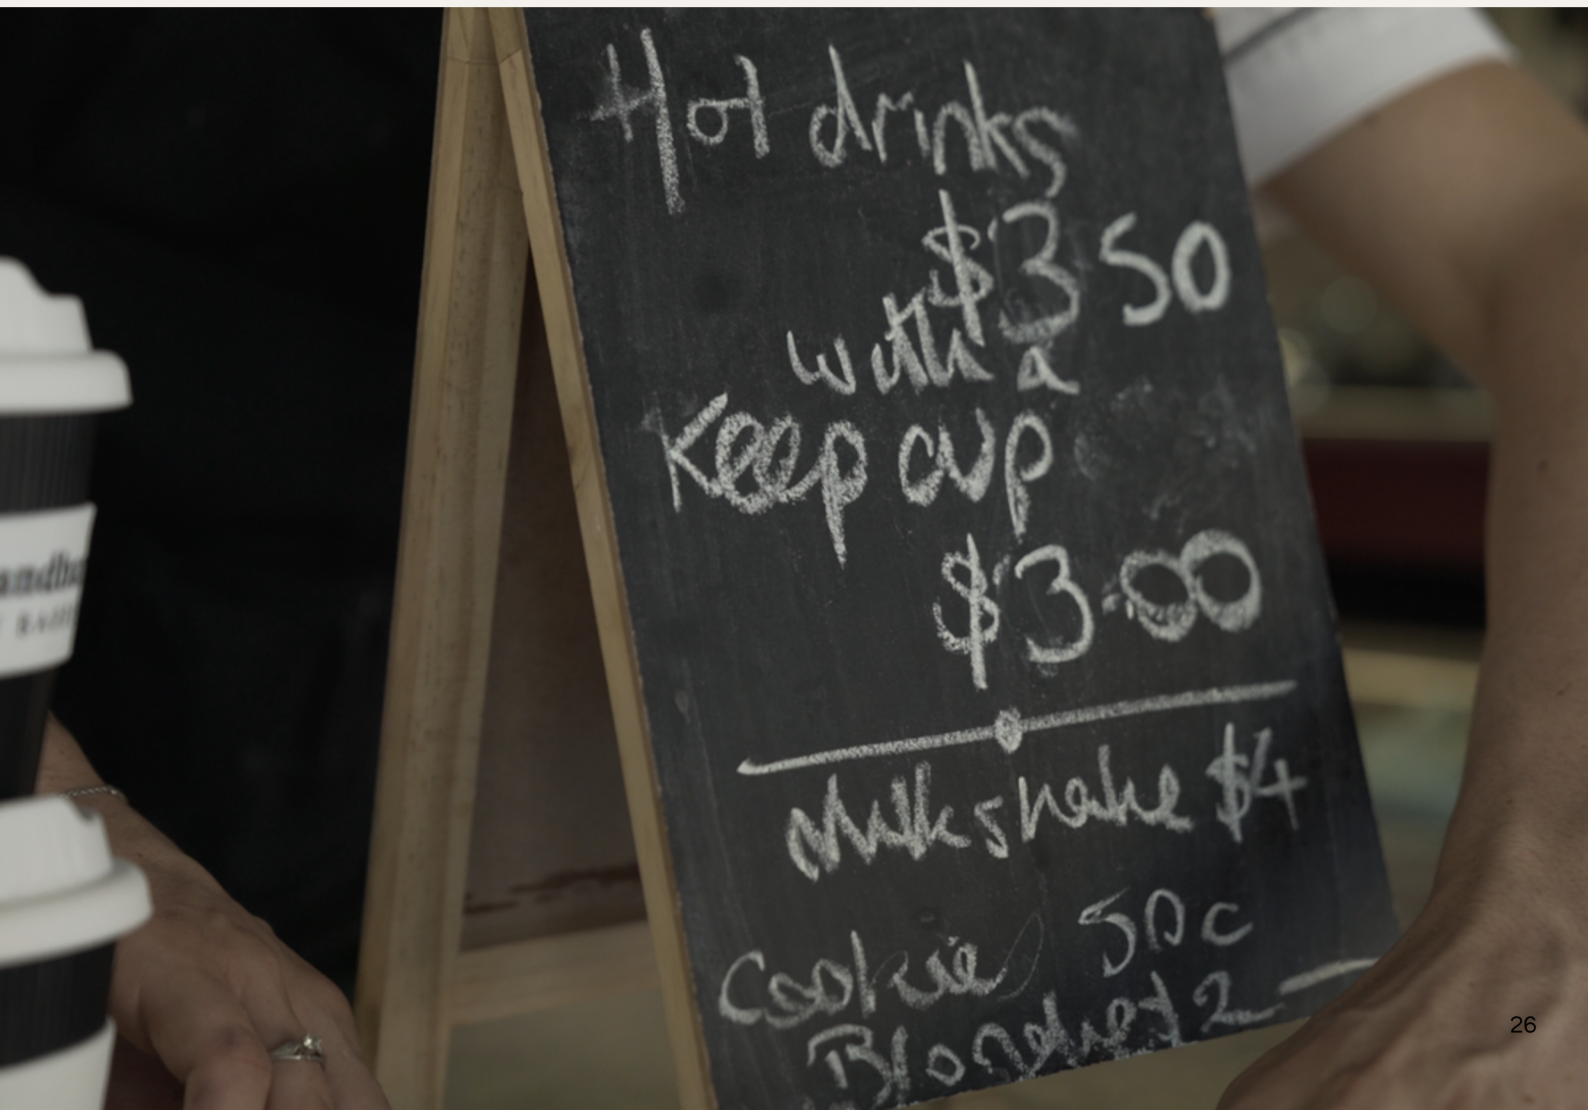 Hot drinks
$3.50
with a
Keep cup
$3.00
Milkshake $4
Cookie 50c
Blondie $2
26